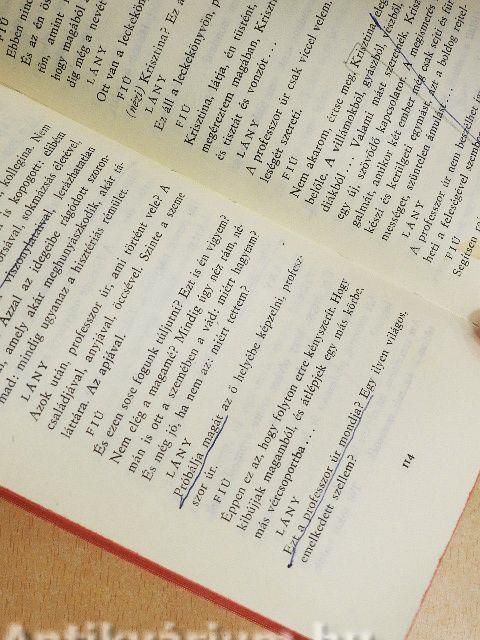 FIÚ
Ebben
És az én
tőn, amint
hogy magából
dig még a nevét
LÁNY
Ott van a leckekön
FIÚ
(nézi) Krisztina? Ez a
LÁNY
Ez áll a leckekönyvön, p
FIÚ
Krisztina, látja, én füstént,
megéreztem magában, Kriszti
és tisztát és vonzót....
LÁNY
A professzor úr csak viccel velem.
leségét szereti.
FIÚ
Nem akarom, értse meg, Krisztina,
belőle. A villámokból, gyászból,
diákból... Valami mást szeretnék, Krisz
egy új, szövődő kapcsolatot. A megismerés
galmát, amikor két ember még csak sejti és für
készi és kerülgeti egymást, ezt a boldog rejtel-
mességet, szüntelen ámulást...
LÁNY
A professzor úr nem beszélhet
heti a feleségével szembe
FIÚ
Segítsen
kolléginа, Nem
is kopogott: ebben
orsával, sokmázsás életével,
iszonylatával, lerázhatatlan
Azzal az idegeibe rágódott szoron-
amely akár meghunyászkodik, akár tá-
mad: mindig ugyanaz a hisztériás rémület.
LÁNY
Azok után, professzor úr, ami történt vele? A
családjával, anyjával, öccsével. Szinte a szeme
láttára. Az apjával.
FIÚ
És ezen sose fogunk túljutni? Ezt is én vigyem?
Nem elég a magamé? Mindig úgy néz rám, né-
mán is ott a szemében a vád: miért hagytam?
És még jó, ha nem az: miért tettem?
LÁNY
Próbálja magát az ő helyébe képzelni, profesz-
szor úr.
FIÚ
Éppen ez az, hogy folyton erre kényszerít. Hogy
kibújjak magamból, és átlépjek egy más körbe,
más vércsoportba...
LÁNY
Ezt a professzor úr mondja? Egy ilyen világos,
emelkedett szellem?
114
Antikvárium.hu